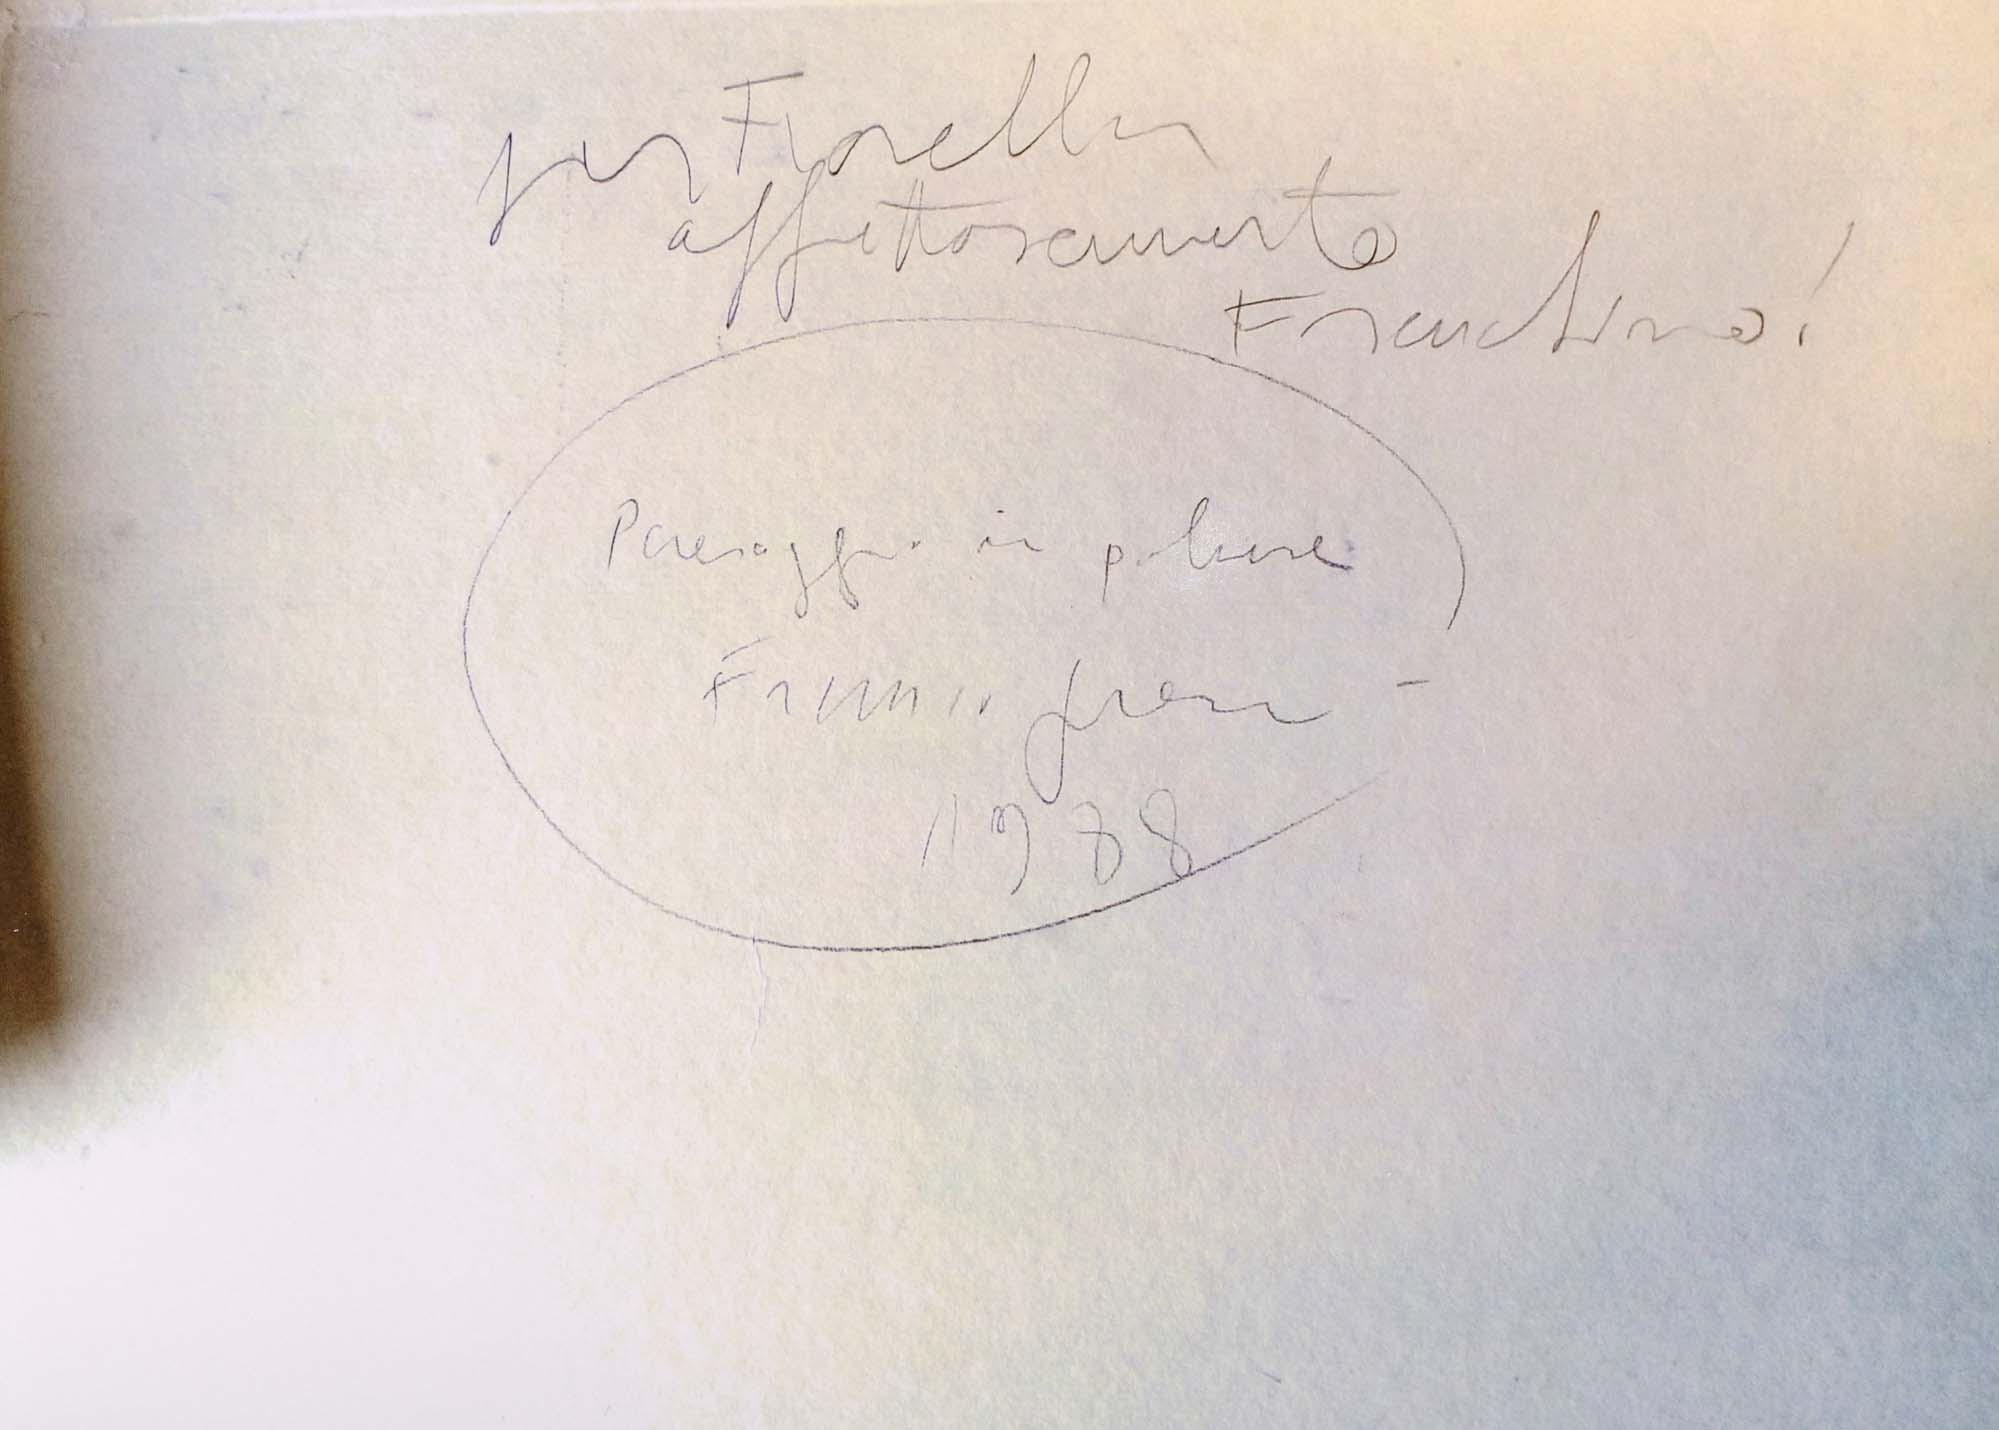 per Fiorella
affettuosamente
Franchino!
Paesaggio in polvere
Franco
1988